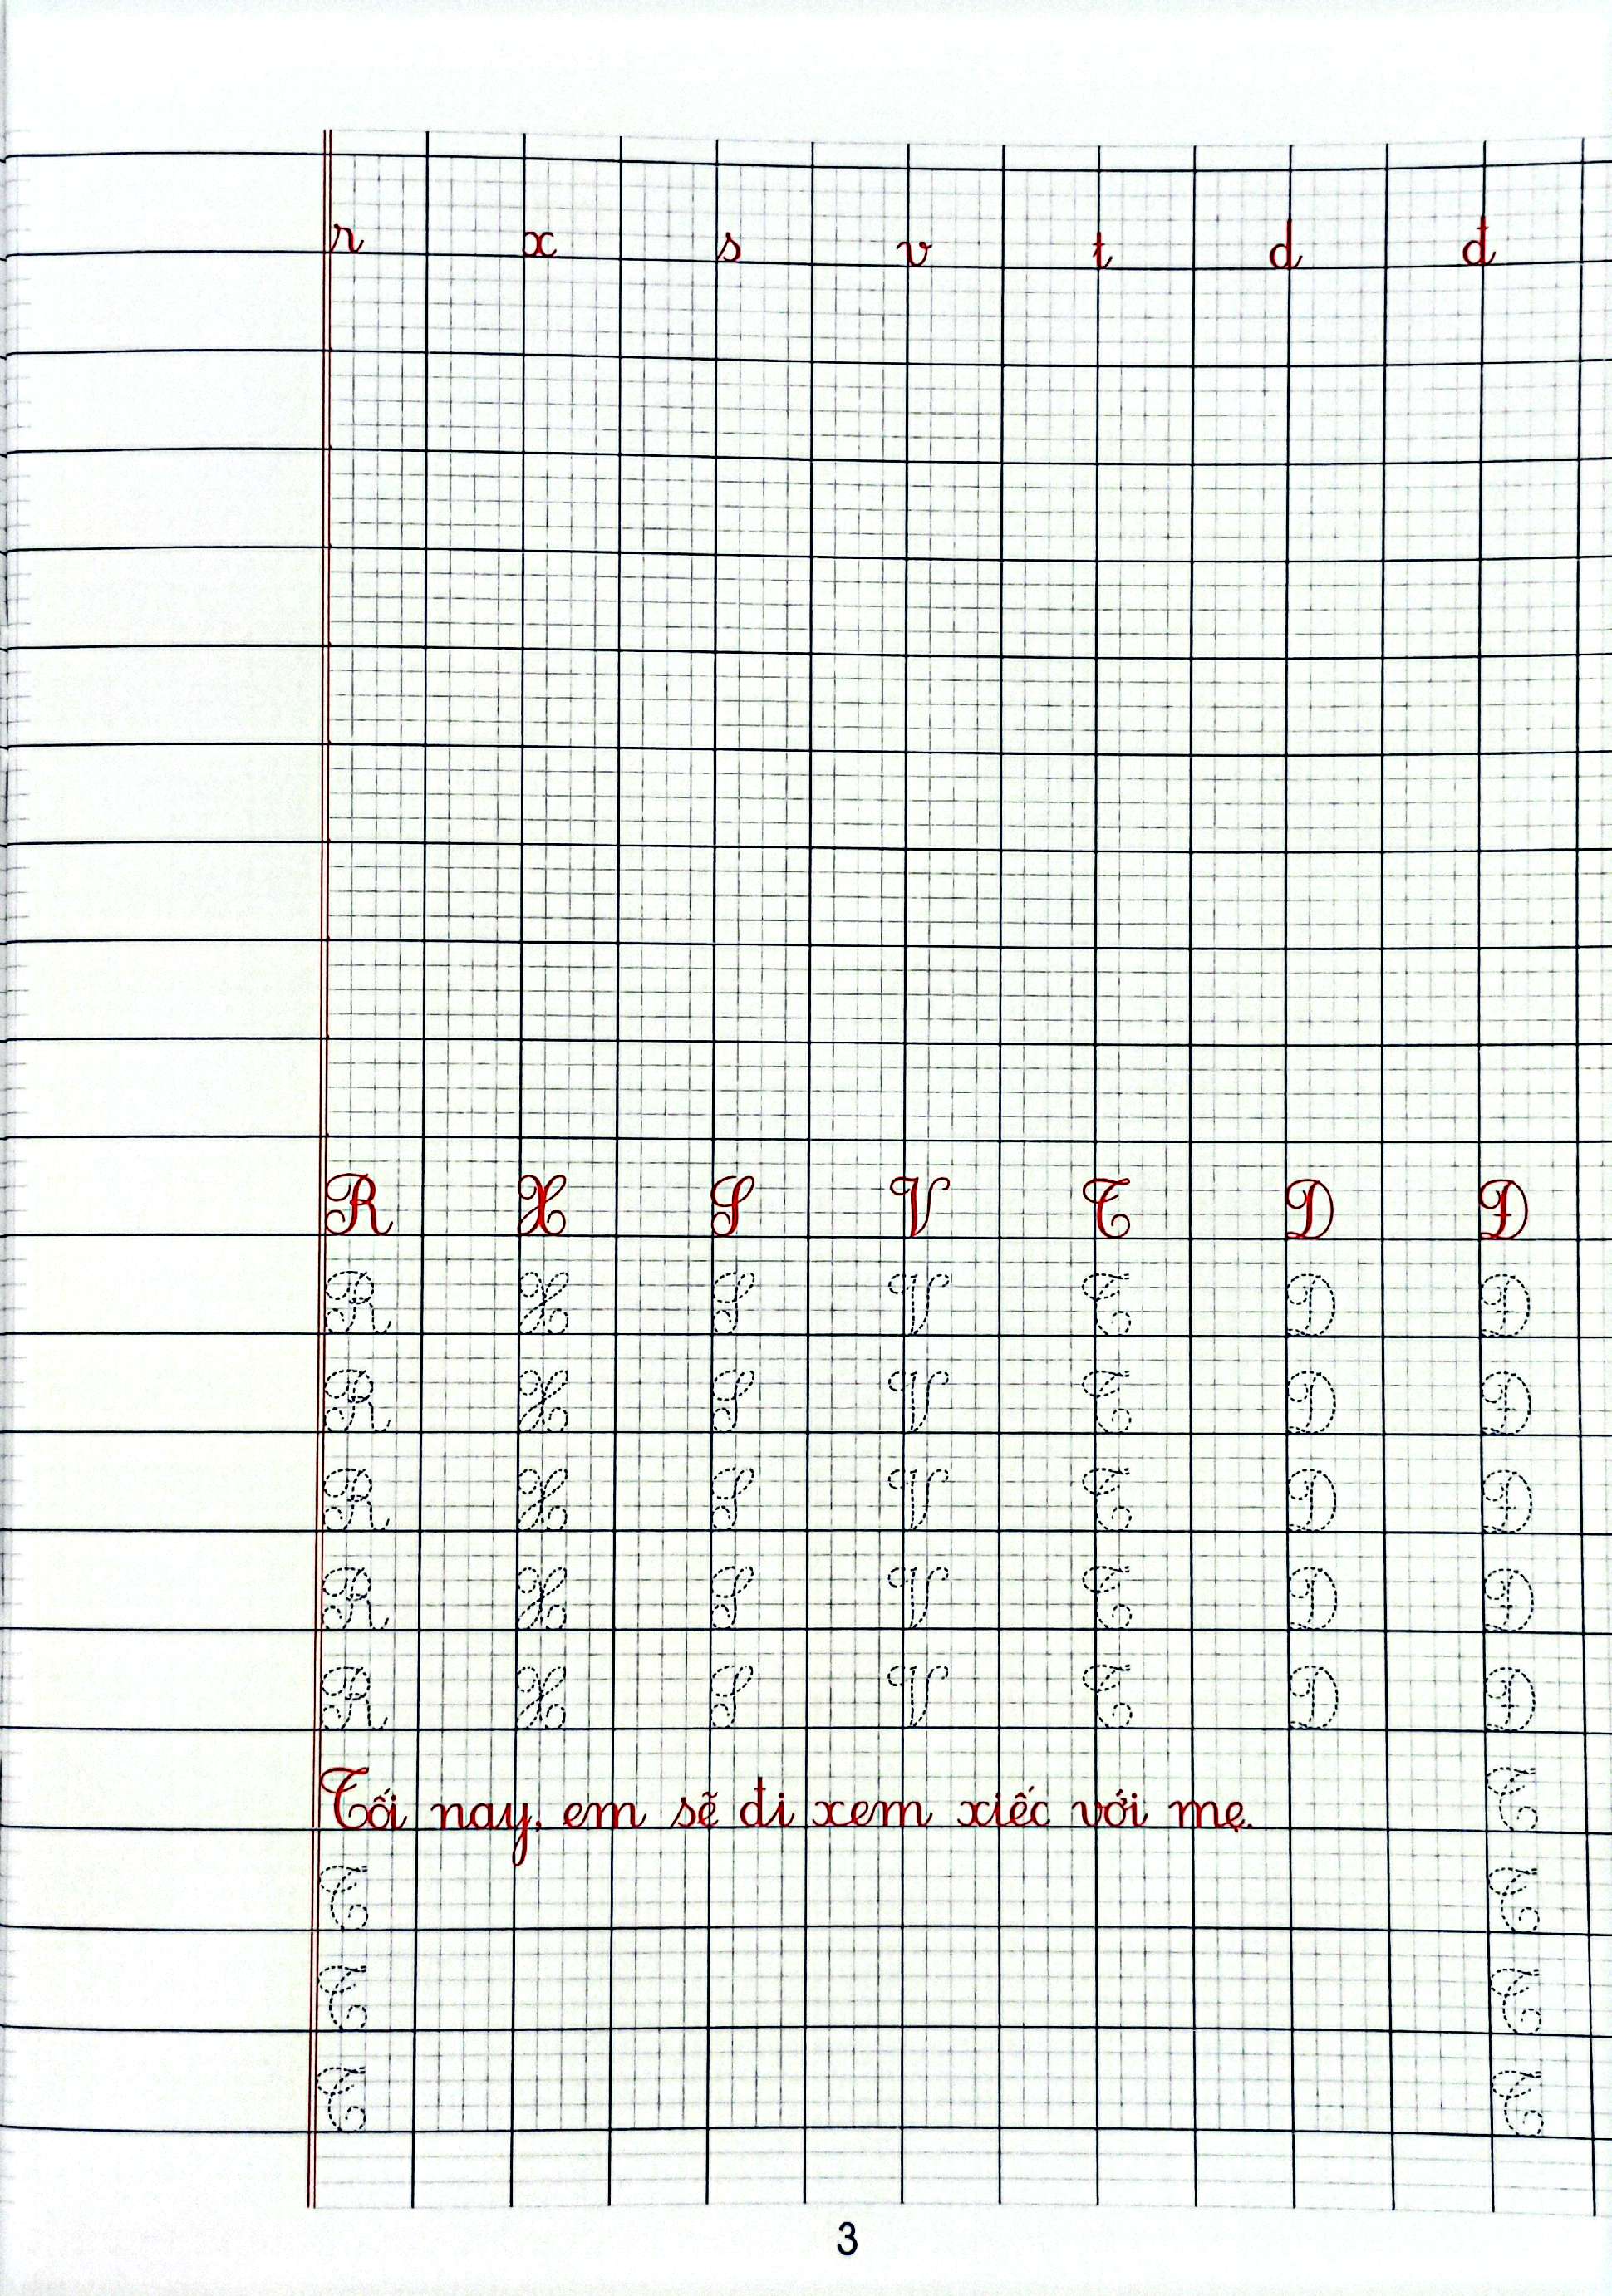 r x s v t d đ
R X S V T D Đ
R X S V T D Đ
R X S V T D Đ
R X S V T D Đ
R X S V T D Đ
R X S V T D Đ
Tối nay, em sẽ đi xem xiếc với mẹ. T
T T
T T
T T
3